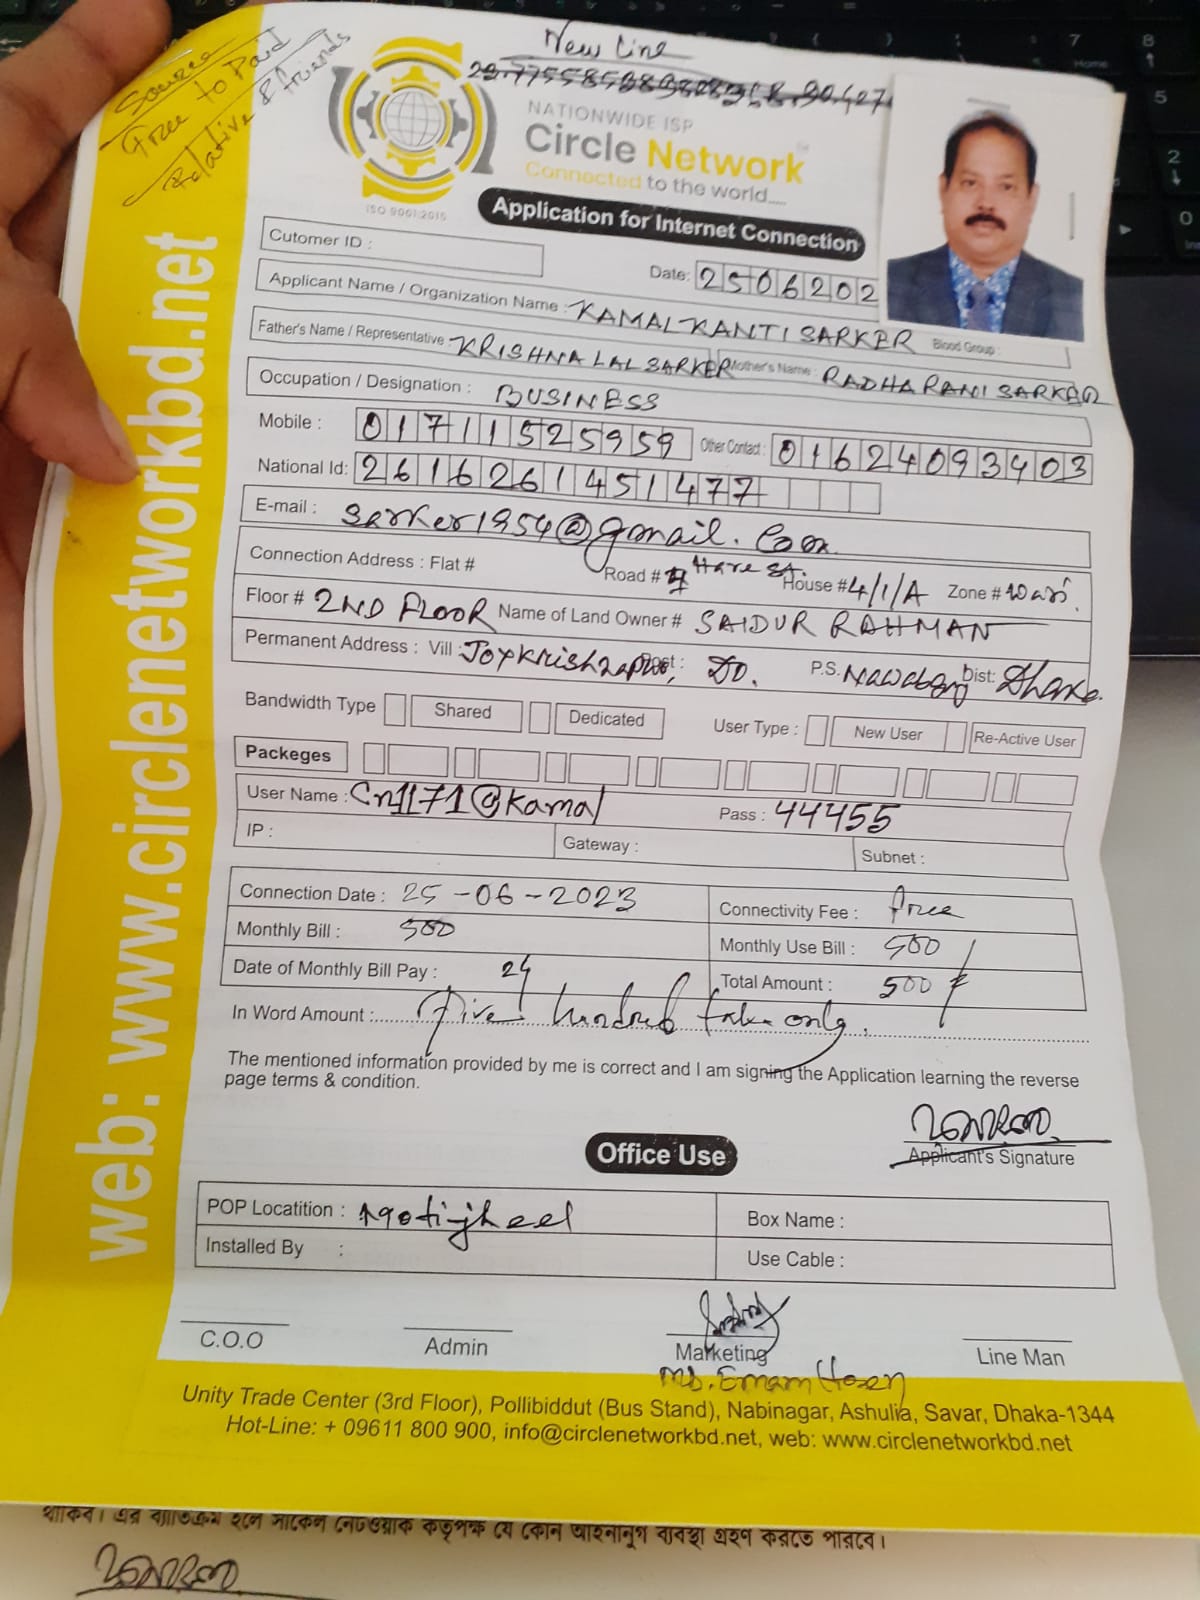 Source
Free to Paid
Relative & friends
New Line
NATIONWIDE ISP
Circle Network
Connected to the world.....
ISO 9001:2015
Application for Internet Connection
Cutomer ID :
Date: 2506202
Applicant Name / Organization Name : KAMAL KANTI SARKER Blood Group :
Father's Name / Representative : KRISHNA LAL SARKER Mother's Name : RADHA RANI SARKER
Occupation / Designation : BUSINESS
Mobile : 01711525959 Other Contact : 01624093403
National Id: 2616261451477
E-mail : sarker1954@gmail.com
Connection Address : Flat # Road # Hare St. House # 4/1/A Zone # ওয়ারী
Floor # 2ND FLOOR Name of Land Owner # SAIDUR RAHMAN
Permanent Address : Vill : Joykrishnapur, Post : Do. P.S. Nawabgonj Dist: Dhaka.
Bandwidth Type Shared Dedicated User Type : New User Re-Active User
Packeges
User Name : Cn1171@kamal Pass : 44455
IP : Gateway : Subnet :
Connection Date : 25-06-2023 Connectivity Fee : free
Monthly Bill : 500 Monthly Use Bill : 500/
Date of Monthly Bill Pay : 24 Total Amount : 500/
In Word Amount :..... Five hundred taka only.
The mentioned information provided by me is correct and I am signing the Application learning the reverse
page terms & condition.
Applicant's Signature
Office Use
POP Locatition : Motijheel Box Name :
Installed By : Use Cable :
C.O.O Admin Marketing Line Man
Md. Emam Hosen
Unity Trade Center (3rd Floor), Pollibiddut (Bus Stand), Nabinagar, Ashulia, Savar, Dhaka-1344
Hot-Line: + 09611 800 900, info@circlenetworkbd.net, web: www.circlenetworkbd.net
web: www.circlenetworkbd.net
থাকিব। এর ব্যতিক্রম হলে সার্কেল নেটওয়ার্ক কতৃপক্ষ যে কোন আইনানুগ ব্যবস্থা গ্রহণ করতে পারবে।